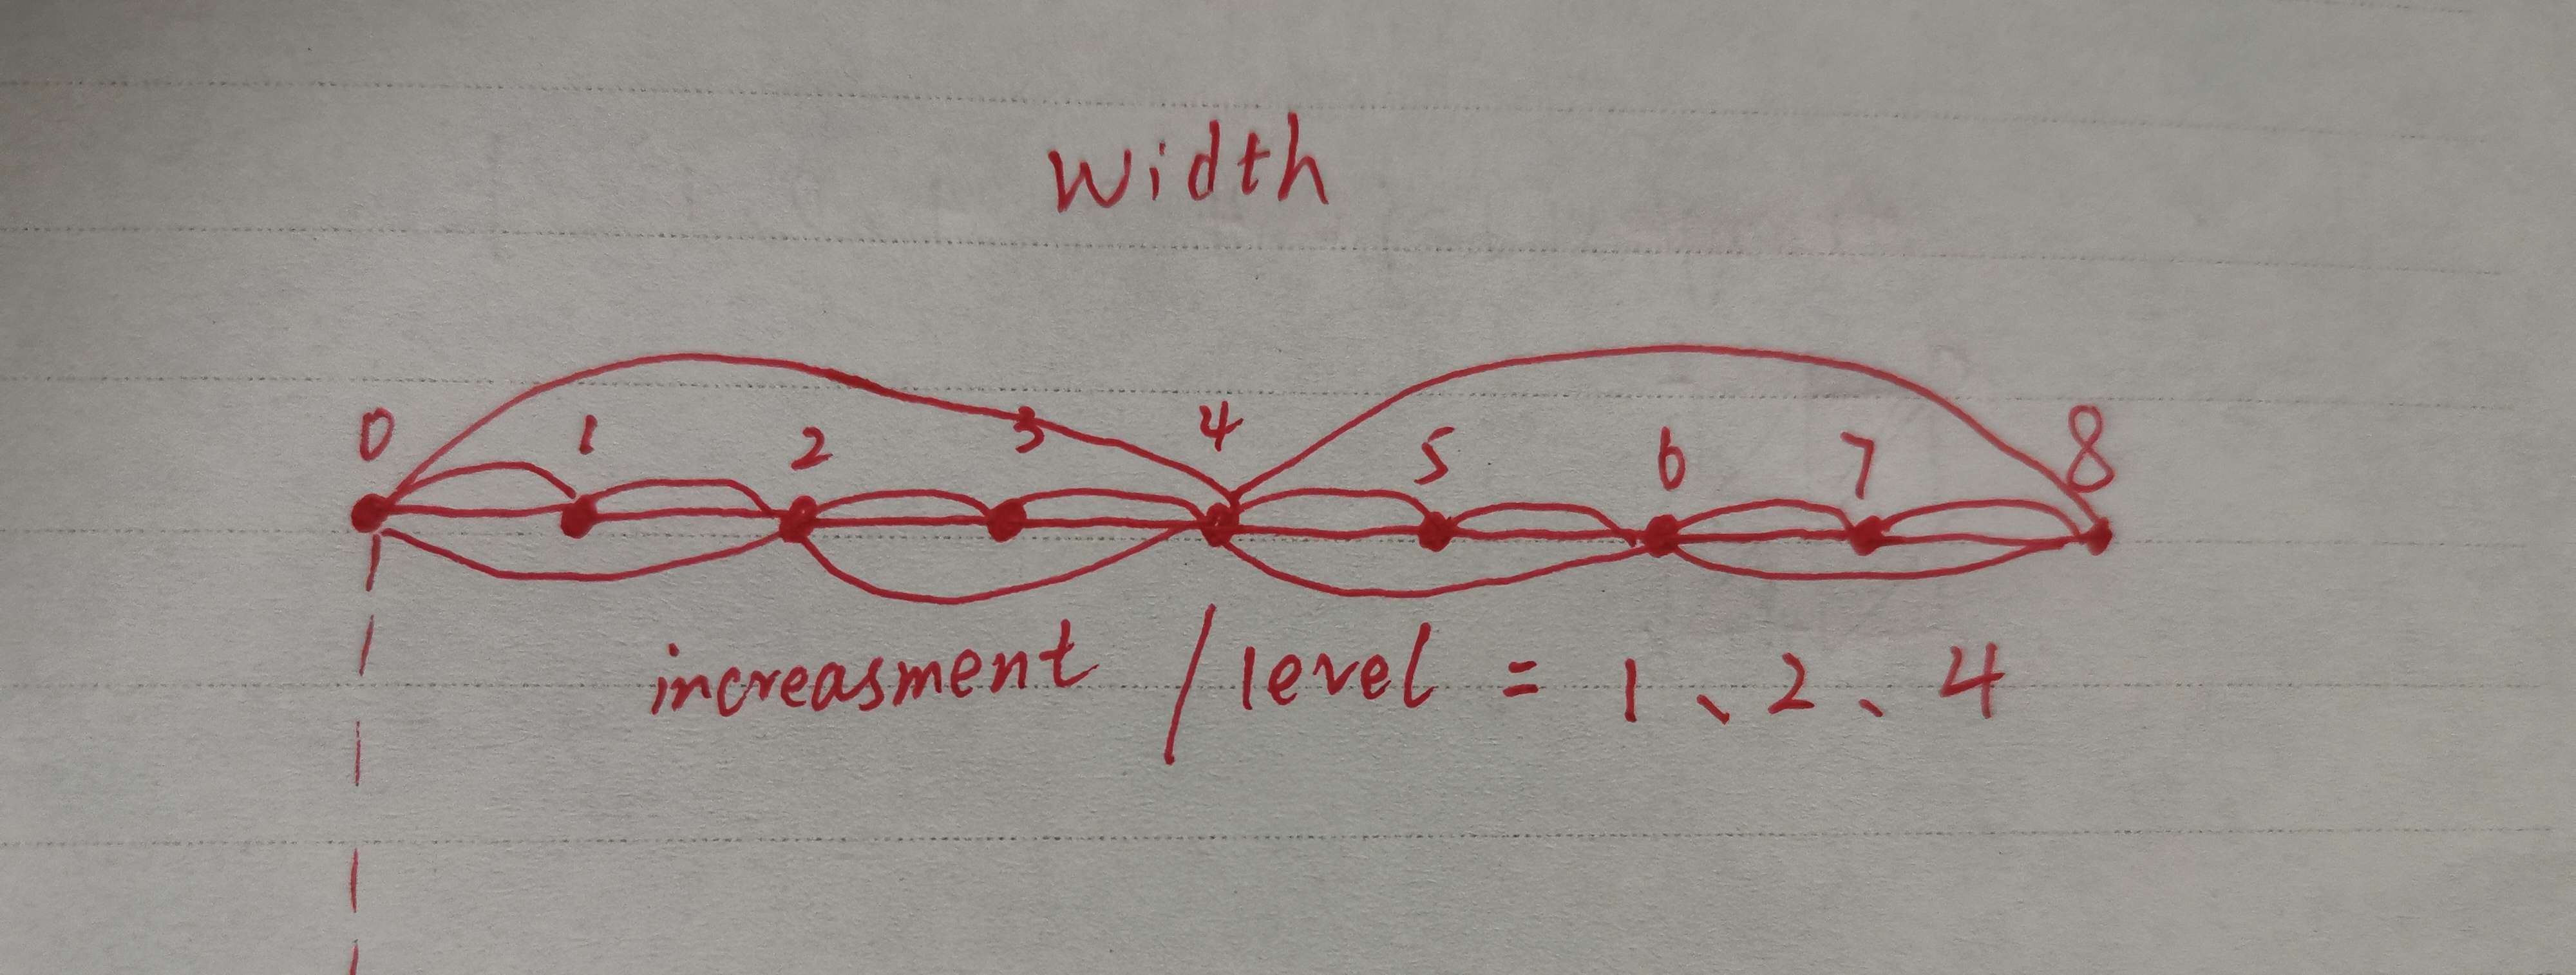 width
0 1 2 3 4 5 6 7 8
increasment / level = 1、2、4